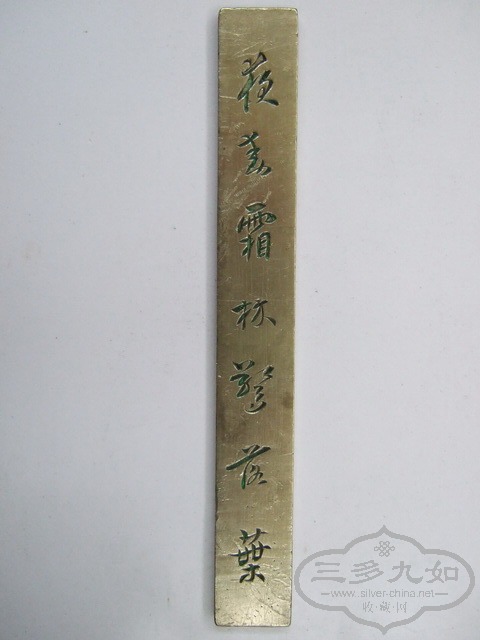 霜林驚落葉
三多九如
www.silver-china.net
收·藏·网